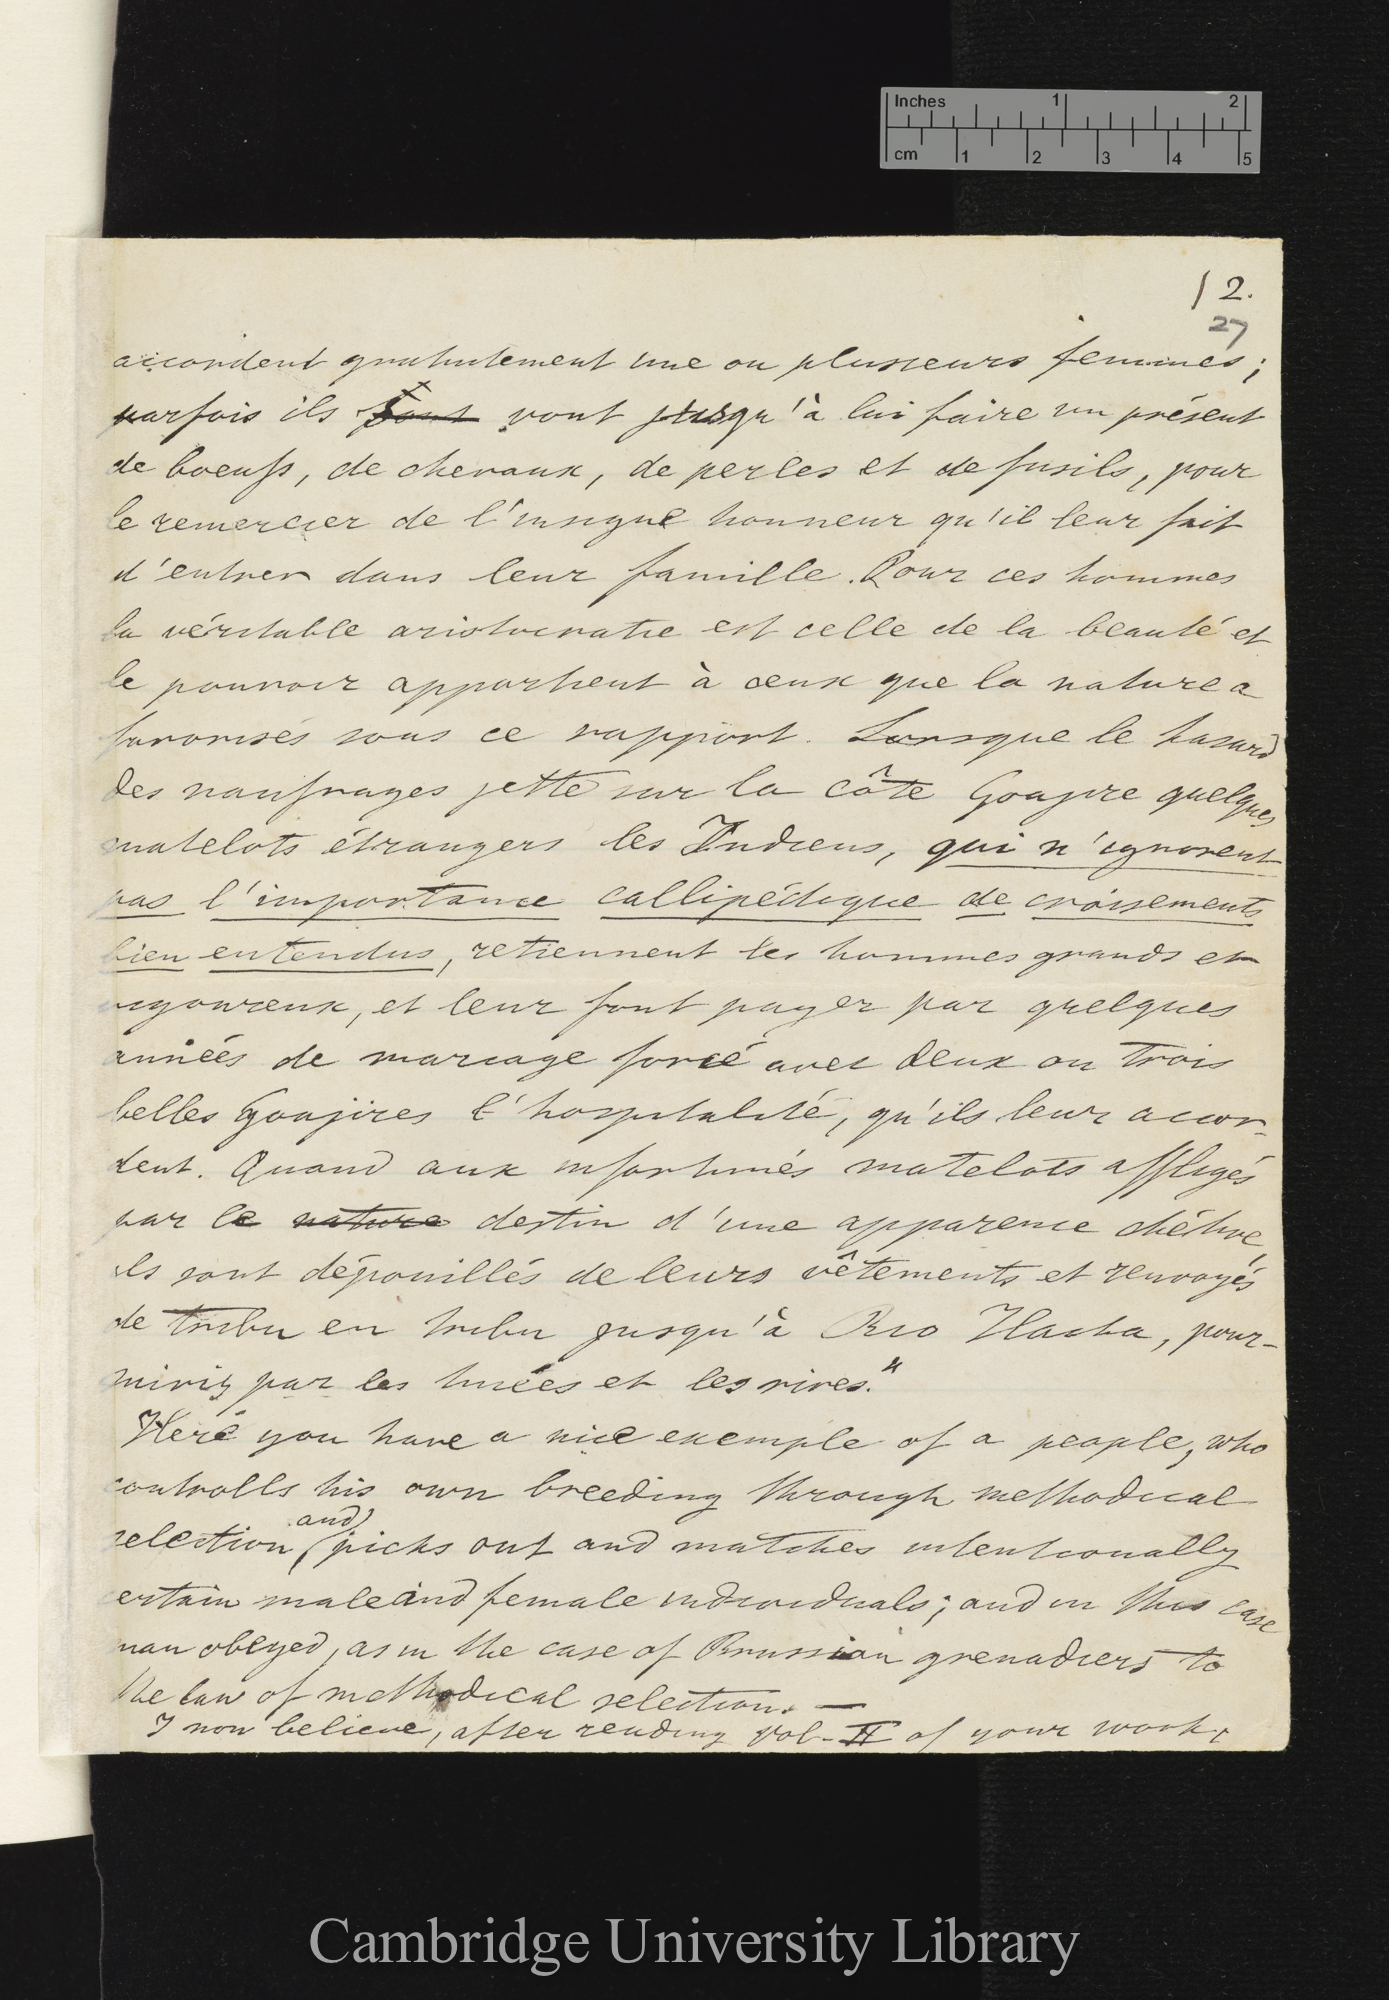 Inches 1 2
cm 1 2 3 4 5
12.
27
accordent gratuitement une ou plusieurs femmes;
parfois ils font vont jusqu'à lui faire un présent
de boeufs, de chevaux, de perles et de fusils, pour
le remercier de l'insigne honneur qu'il leur fait
d'entrer dans leur famille. Pour ces hommes
la véritable aristocratie est celle de la beauté et
le pouvoir appartient à ceux que la nature a
favorisés sous ce rapport. Lorsque le hasard
des naufrages jette sur la côte Goajire quelques
matelots étrangers les Indiens, qui n'ignorent
pas l'importance callipédique de croisements
bien entendus, retiennent les hommes grands et
vigoureux, et leur font payer par quelques
années de mariage forcé avec deux ou trois
belles Goajires l'hospitalité, qu'ils leur accor-
dent. Quand aux infortunés matelots affligés
par le nature destin d'une apparence chétive,
ils sont dépouillés de leurs vêtements et renvoyés
de tribu en tribu jusqu'à Rio Hacha, pour-
suivis par les huées et les rires."
Here you have a nice exemple of a people, who
controlls his own breeding through methodical
selection, and picks out and matches intentionally
certain male and female individuals; and in this case
man obeyed, as in the case of Prussian grenadiers to
the law of methodical selection. —
I now believe, after reading Vol. II of your work,
Cambridge University Library